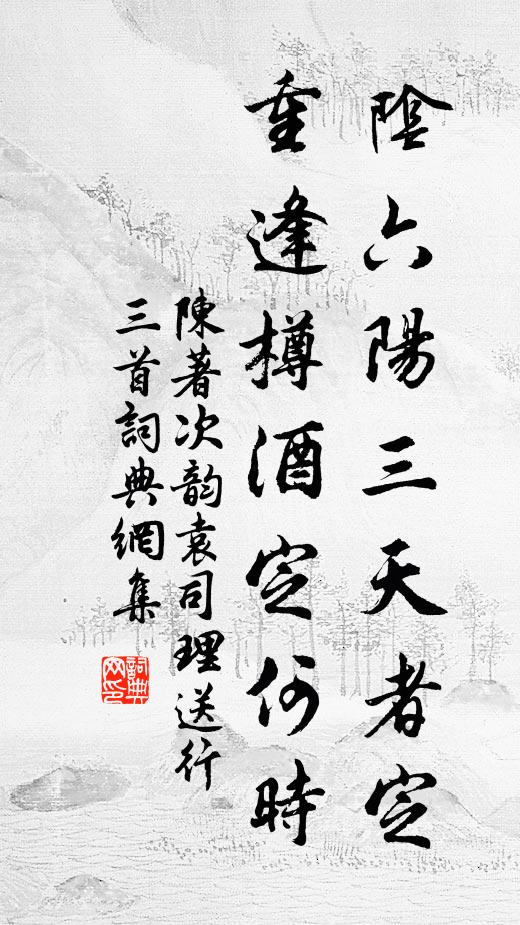 陰六陽三天者定
重逢樽酒定何時
陳著次韵袁司理送行
三首詞典網集
詞典
網印